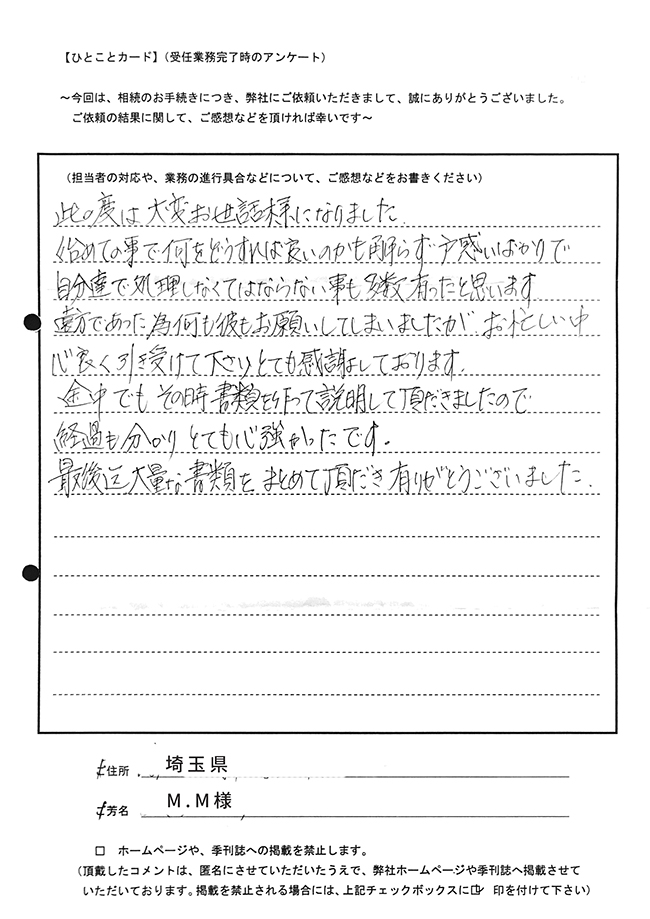 【ひとことカード】(受任業務完了時のアンケート)
～今回は、相続のお手続きにつき、弊社にご依頼いただきまして、誠にありがとうございました。
ご依頼の結果に関して、ご感想などを頂ければ幸いです～
(担当者の対応や、業務の進行具合などについて、ご感想などをお書きください)
此の度は大変お世話様になりました.
始めての事で何をどうすれば良いのかも解らず戸惑いばかりで
自分達で処理しなくてはならない事も多数有ったと思います
遠方であった為何も彼もお願いしてしまいましたが お忙しい中
心良く引き受けて下さりとても感謝しております.
途中でもその時書類を作って説明して頂だきましたので
経過も分かりとても心強かったです.
最後迄大量な書類をまとめて頂だき有りがとうございました.
住所 埼玉県
芳名 M.M様
□ ホームページや、季刊誌への掲載を禁止します。
(頂戴したコメントは、匿名にさせていただいたうえで、弊社ホームページや季刊誌へ掲載させて
いただいております。掲載を禁止される場合には、上記チェックボックスに☑ 印を付けて下さい)